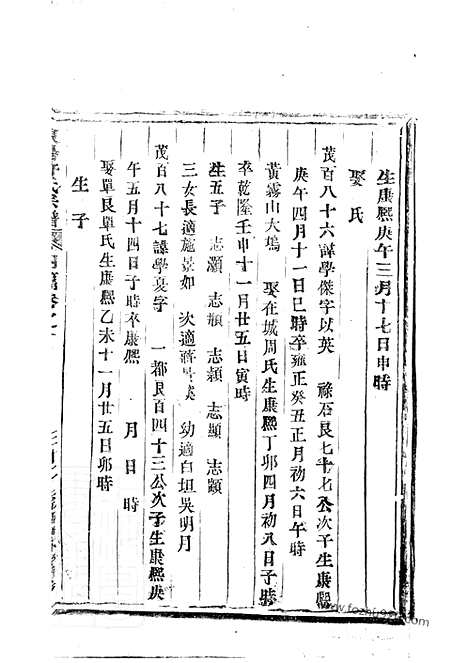 生康熙庚午三月十七日申時
娶 氏
茂百八十六諱學傑字以英 祿石艮七十七公次子生康熙
庚午四月十一日巳時卒雍正癸丑正月初六日午時
黃霧山大塢 娶在城周氏生康熙丁卯四月初八日子時
卒乾隆壬申十一月廿五日寅時
生五子 志灝 志顯 志顥
三女長適施景如 次適蔣 幼適白坦吳明月
茂百八十七諱學夏字 一都艮百四十三公次子生康熙庚
午五月十四日子時卒康熙 月 日 時
娶單艮單氏生康熙乙未十一月廿五日卯時
生 子
氏宗譜
www.fozhu920.com